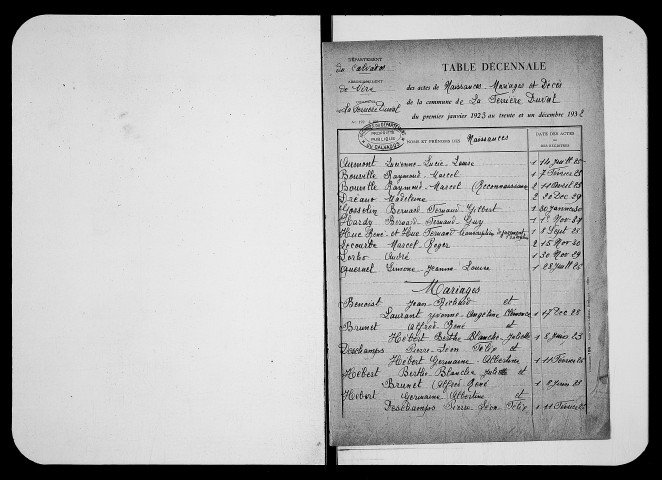 DÉPARTEMENT
du Calvados
ARRONDISSEMENT
de Vire
COMMUNE
La Ferrière Duval
TABLE DÉCENNALE
des actes de Naissances - Mariages et Décès
de la commune de La Ferrière Duval
du premier janvier 1923 au trente et un décembre 1932
PROPRIÉTÉ PUBLIQUE
DU CALVADOS
NOMS ET PRÉNOMS DES Naissances
DATE DES ACTES
DES REGISTRES
Aumont Lucienne Lucie Louise 1 14 Juill 25
Bourille Raymond Marcel 1 7 Février 28
Bourille Raymond Marcel (Reconnaissance 2 11 Avril 28
Madeleine 2 20 Dec 29
Gosselin Bernard Fernand Gilbert 1 30 Janvier 30
Hardy Bernard Fernand Guy 1 1er Nov 27
Huc René et Huc Fernand 1 8 Sept 25
Lecourbe Marcel Roger 2 15 Nov 30
André 1 30 Nov 29
Quesnel Simone Jeanne Louise 1 28 Juill 25
Mariages
Benoist Jean Richard et
Laurant Yvonne Angeline Clémence 1 17 Dec 28
Brunet Alfred René et
Hébert Berthe Blanche Juliette 1 8 Juin 23
Deschamps Pierre Léon Félix et
Hébert Germaine Albertine 1 11 Février 25
Hébert Berthe Blanche Juliette et
Brunet Alfred René 1 8 Juin 23
Hébert Germaine Albertine et
Deschamps Pierre Léon Félix 1 11 Février 25